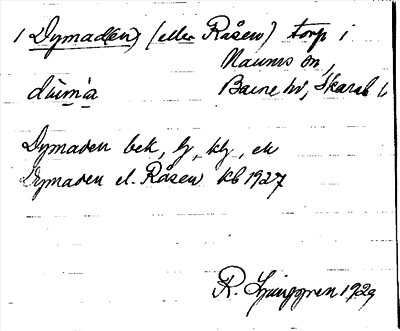 1 Dymaden) (eller Råsen) torp i
Naums sn,
dùma Barne hd, Skarab. l.
Dymaden bek, lj, klj, ek
Dymaden el. Råsen kb 1927
R. Ljunggren 1929